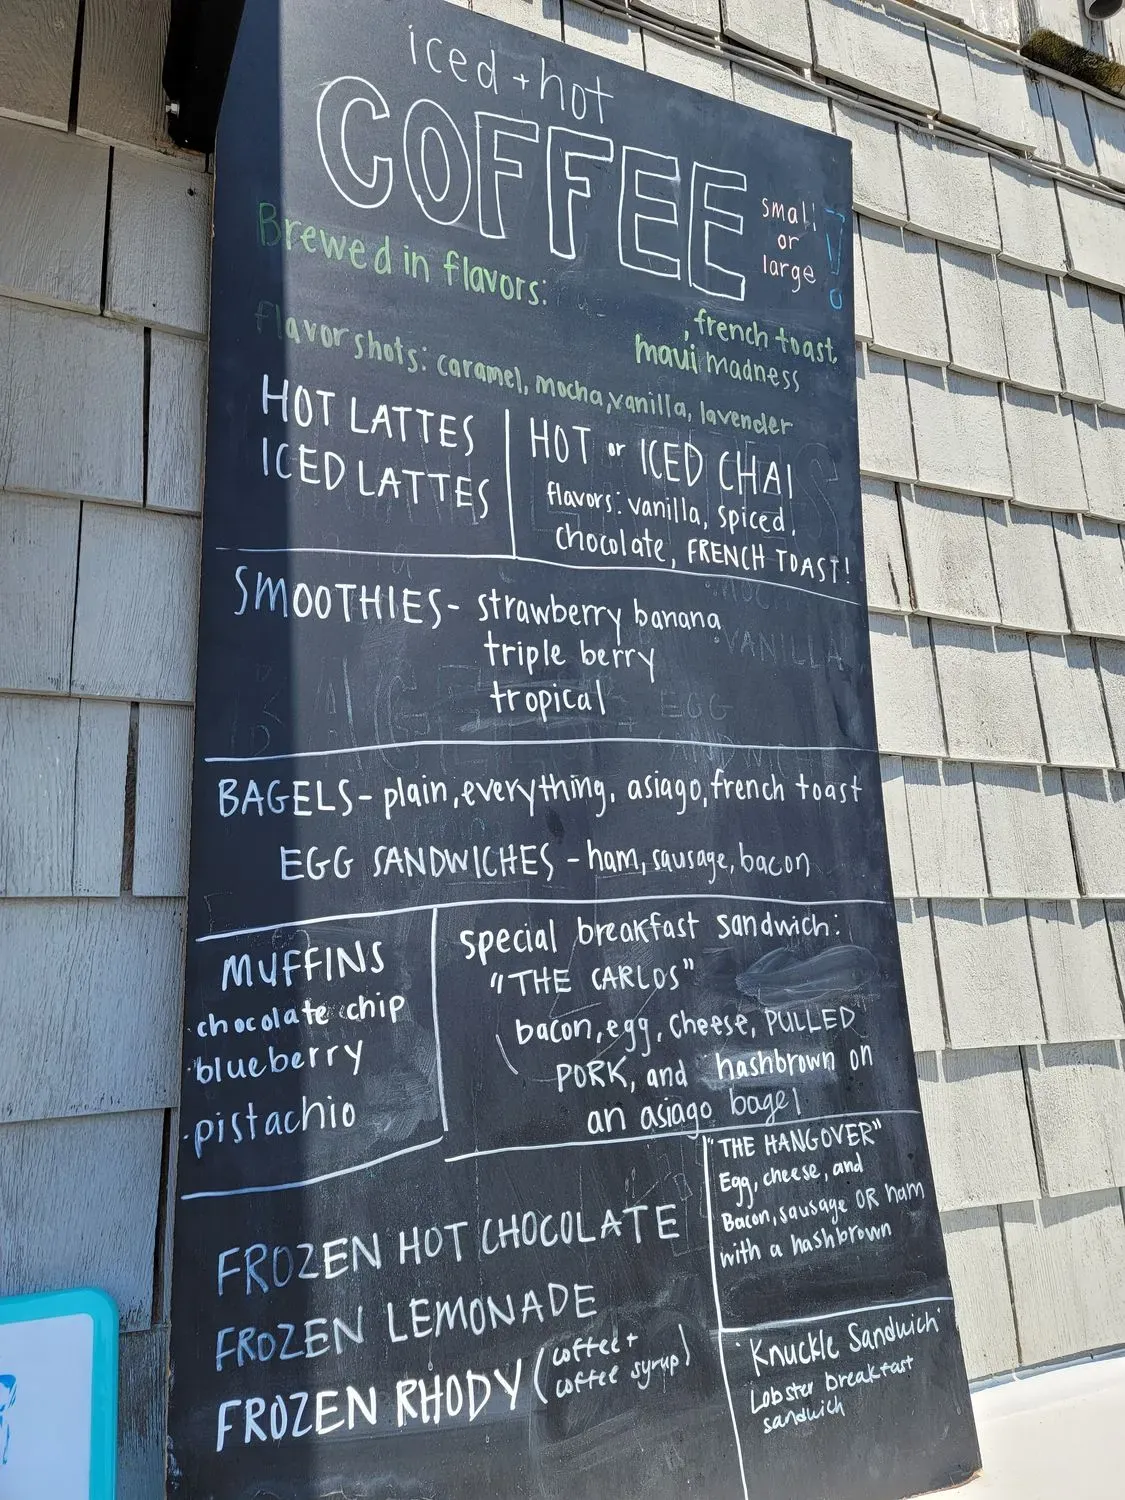 iced + hot
COFFEE
small
or
large
!
Brewed in flavors:
, french toast,
maui madness
flavor shots: caramel, mocha, vanilla, lavender
HOT LATTES
ICED LATTES
HOT or ICED CHAI
flavors: vanilla, spiced,
chocolate, FRENCH TOAST!
SMOOTHIES- strawberry banana
triple berry
tropical
BAGELS- plain, everything, asiago, french toast
EGG SANDWICHES - ham, sausage, bacon
MUFFINS
·chocolate chip
·blueberry
·pistachio
special breakfast sandwich:
"THE CARLOS"
bacon, egg, cheese, PULLED
PORK, and hashbrown on
an asiago bagel
"THE HANGOVER"
Egg, cheese, and
Bacon, sausage OR ham
with a hashbrown
FROZEN HOT CHOCOLATE
FROZEN LEMONADE
FROZEN RHODY (coffee +
coffee syrup)
"Knuckle Sandwich"
Lobster breakfast
sandwich